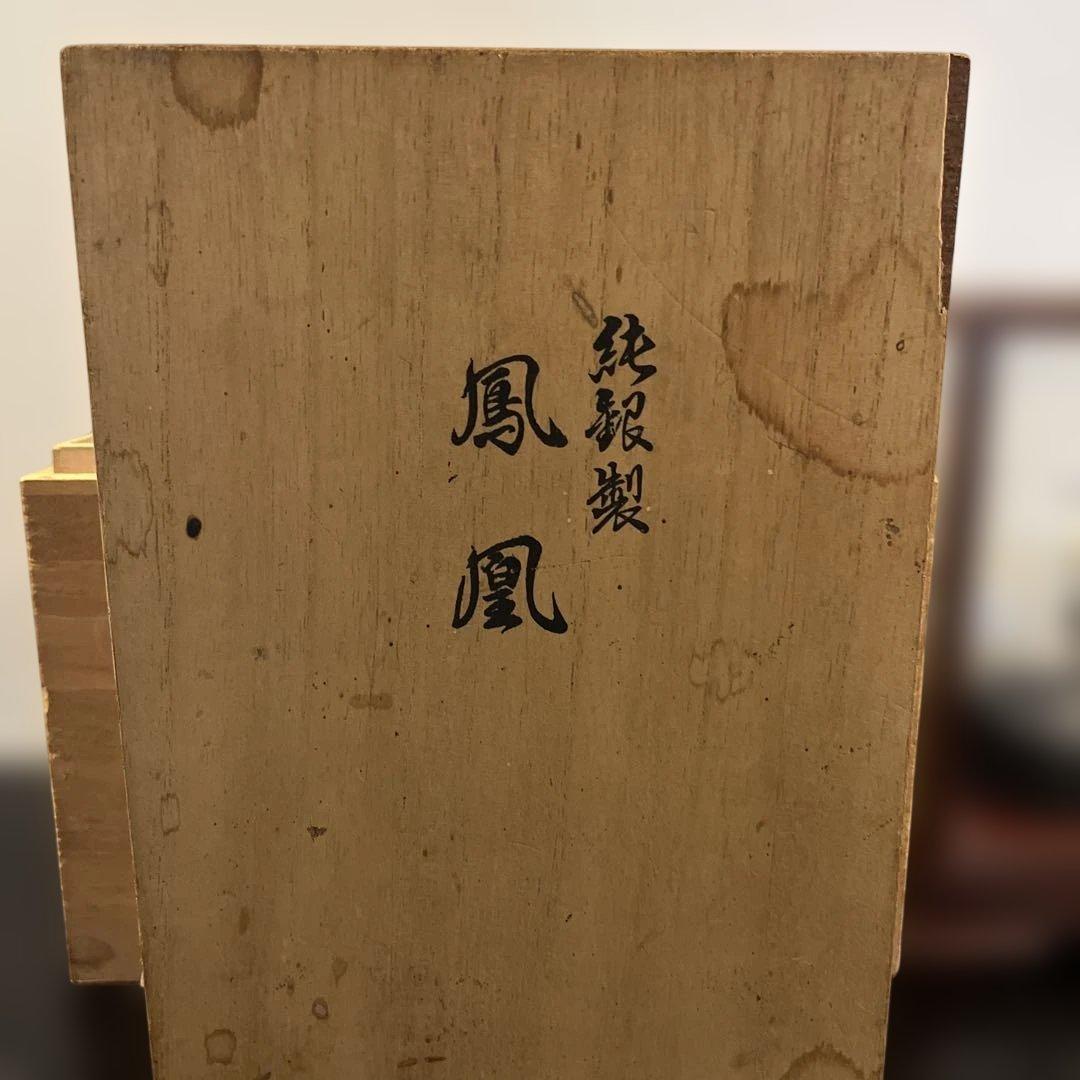 純銀製
鳳凰